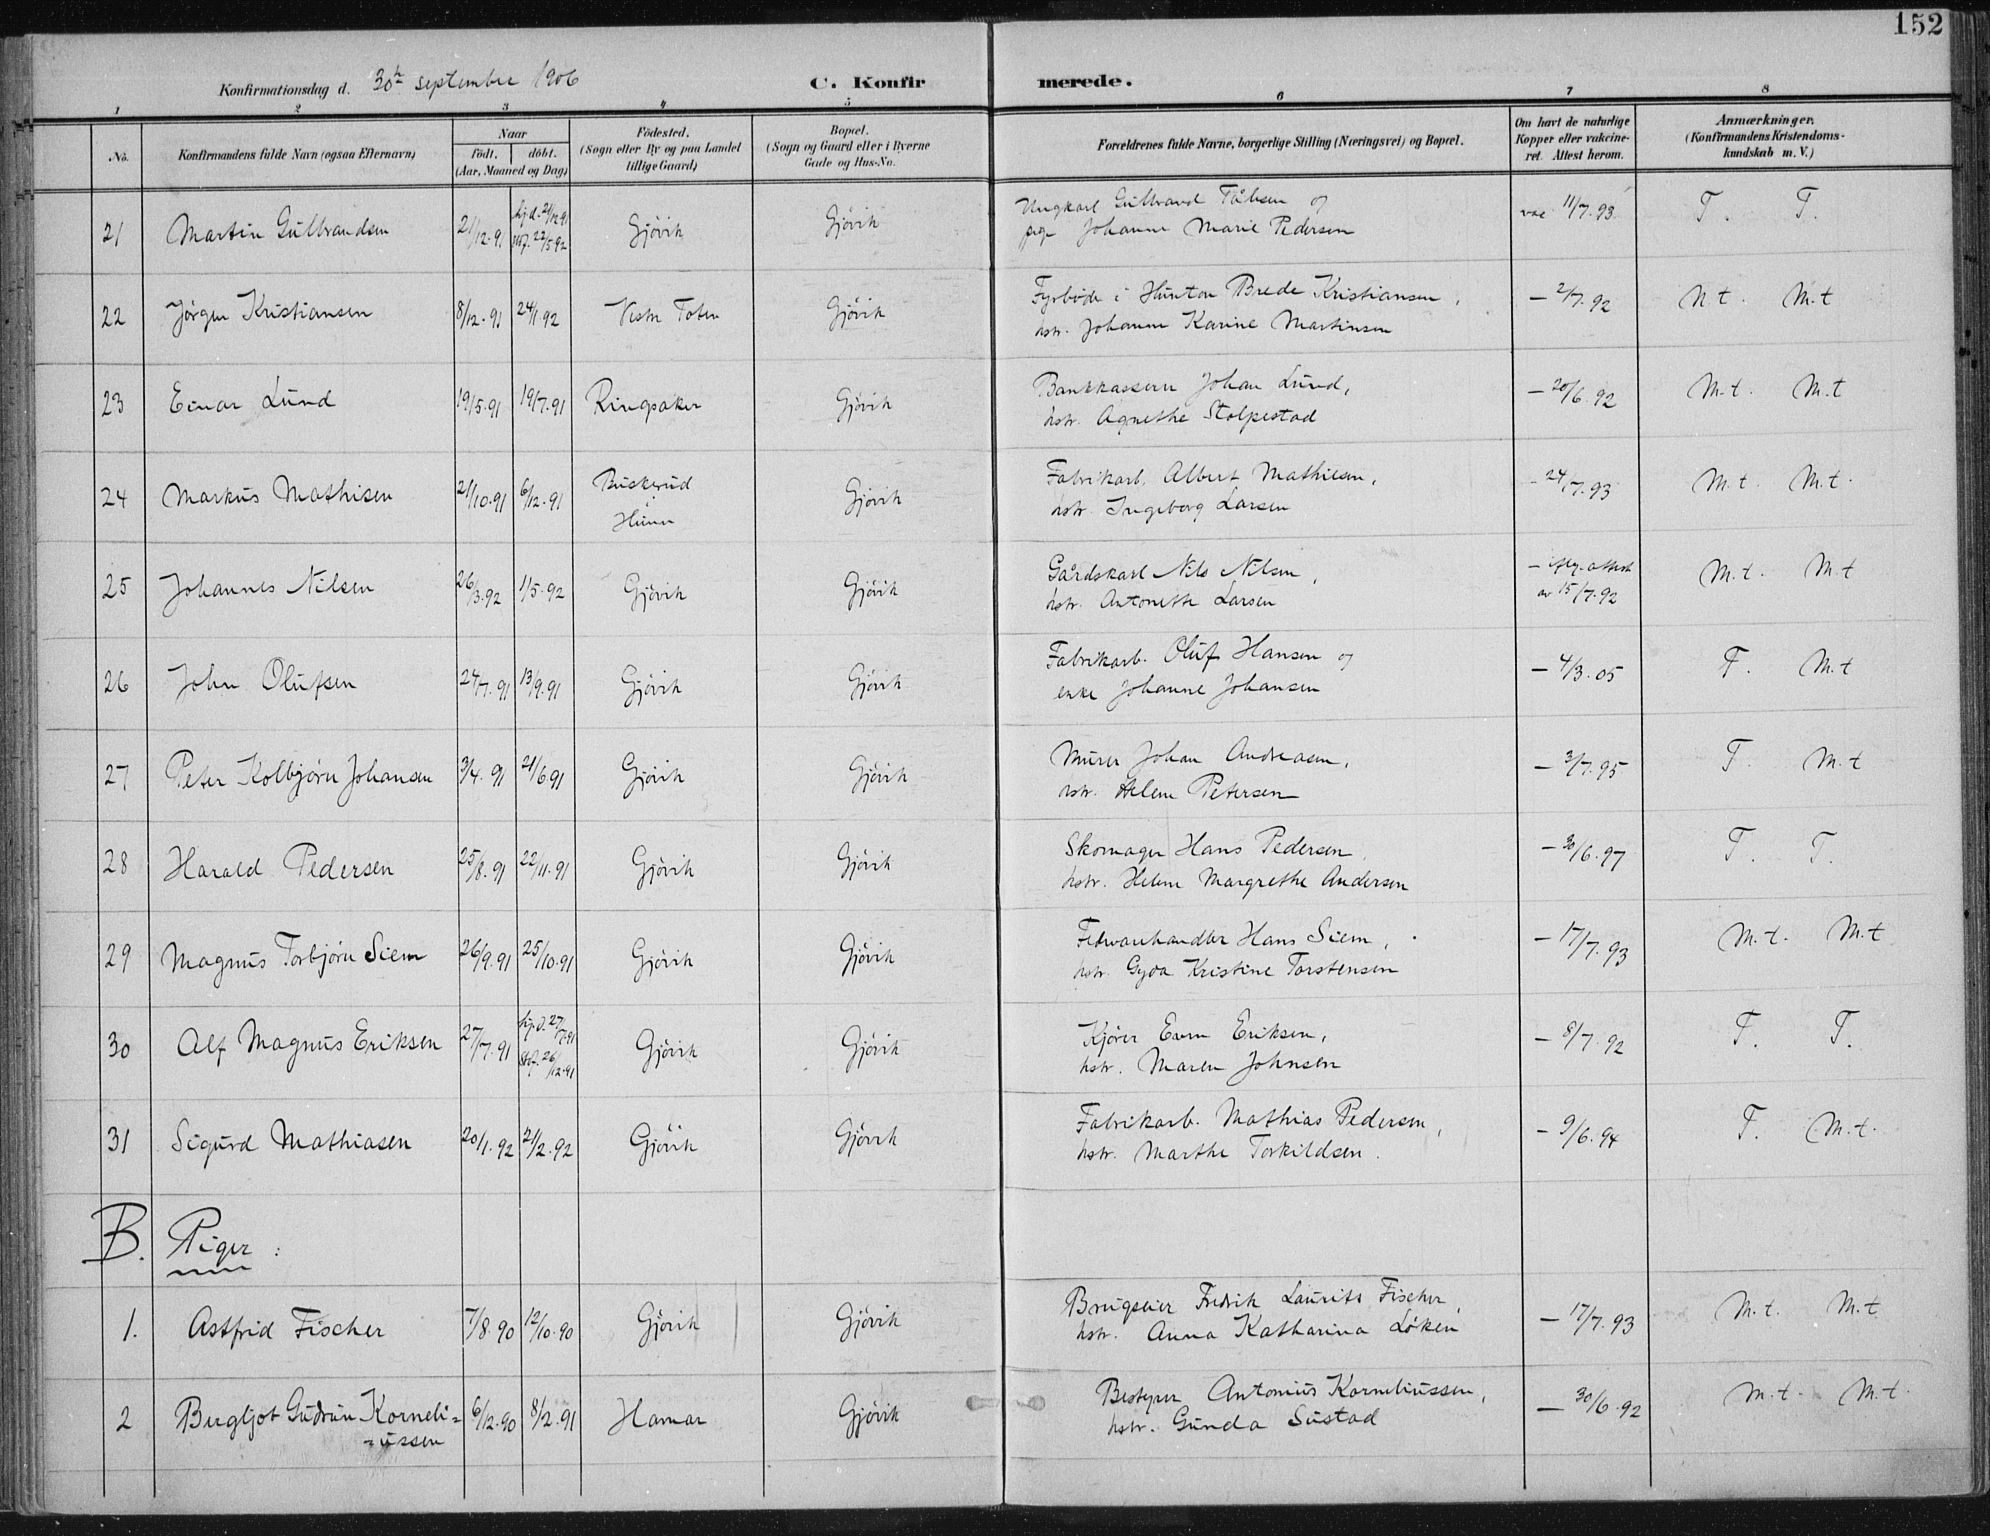 152
Konfirmationsdag d. 30te september 1906 C. Konfirmerede.
1 2 3 4 5 6 7 8
No. Konfirmandens fulde Navn (ogsaa Efternavn) Naar födt. döbt. (Aar, Maaned og Dag) Födested. (Sogn eller By og paa Landet tillige Gaard) Bopæl. (Sogn og Gaard eller i Byerne Gade og Hus-No. Forældrenes fulde Navne, borgerlige Stilling (Næringsvei) og Bopæl. Om havt de naturlige Kopper eller vakcineret. Attest herom. Anmærkninger. (Konfirmandens Kristendomskundskab m. V.)
21 Martin Gulbrandsen 21/12.91 hj.d. 21/12 91 stdf. 22/5 92 Gjövik Gjövik Ungkarl Gulbrand Pedersen og
pige Johanne Marie Pedersen vac 11/7.93 T. T.
22 Jörgen Kristiansen 8/12.91 24/1 92 Vestre Toten Gjövik Fyrböde i Hunton Brede Kristiansen,
hstr. Johanne Karine Martinsen — 2/7.92 Nt. M.t
23 Einar Lund 19/5.91 19/7.91 Ringsaker Gjövik Bankkasserer Johan Lund,
hstr. Agnethe Stolpestad — 20/6.92 M.t. M.t
24 Markus Mathisen 21/10.91 6/12.91 Buskerud
Hunn Gjövik Fabrikarb. Albert Mathisen,
hstr. Ingeborg Larsen - 24/7.93 M.t. M.t.
25 Johannes Nilsen 26/3.92 1/5.92 Gjövik Gjövik Gårdskarl Nils Nilsen,
hstr. Antonette Larsen — iflg. attest
av 15/7.92 M.t. M.t
26 John Olufsen 24/7.91 13/9.91 Gjövik Gjövik Fabrikarb. Oluf Hansen og
enke Johanne Johansen — 4/3.05 T. M.t
27 Peter Kolbjörn Johansen 3/4.91 21/6 91 Gjövik Gjövik Murer Johan Andreasen,
hstr. Helene Petersen — 3/7.95 T. M.t
28 Harald Pedersen 25/8.91 22/11.91 Gjövik Gjövik Skomager Hans Pedersen,
hstr. Helene Margrethe Andersen — 30/6.97 T. T.
29 Magnus Torbjörn Siem 26/9.91 25/10.91 Gjövik Gjövik Fedvarehandler Hans Siem,
hstr. Gyda Kristine Torstensen — 17/7.93 M.t. M.t
30 Alf Magnus Eriksen 27/7.91 hj.d. 27/7.91 stdf. 26/12.91 Gjövik Gjövik Kjörer Even Eriksen,
hstr. Maren Johnsen — 8/7.92 T. T.
31 Sigurd Mathiasen 20/1.92 21/2.92 Gjövik Gjövik Fabrikarb. Mathias Pedersen,
hstr. Marthe Torkildsen. — 9/6.94 T. M.t.
B. Piger:
1. Astfrid Fischer 7/8.90 12/10.90 Gjövik Gjövik Brugseier Fredrik Laurits Fischer,
hstr. Anna Katharina Löken — 17/7.93 M.t. M.t
2 Bergljot Gudrun Korneli-
-ussen 6/12.90 8/2.91 Hamar Gjövik Bestyrer Antonius Korneliussen,
hstr. Gunda Sustad — 30/6.92 M.t. M.t.